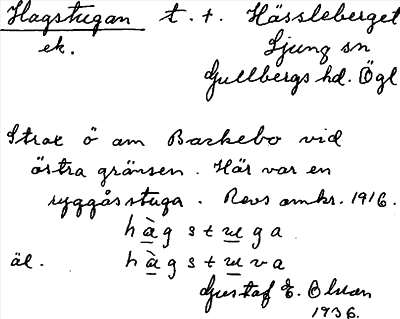 Hagstugan t. t. Hässleberget
ek. Ljung sn
Gullbergs hd. Ögl
Strax ö om Backebo vid
östra gränsen. Här var en
ryggåsstuga. Revs omkr. 1916.
hàgstuga
äl. hàgstuva
Gustaf E. Olson
1936.